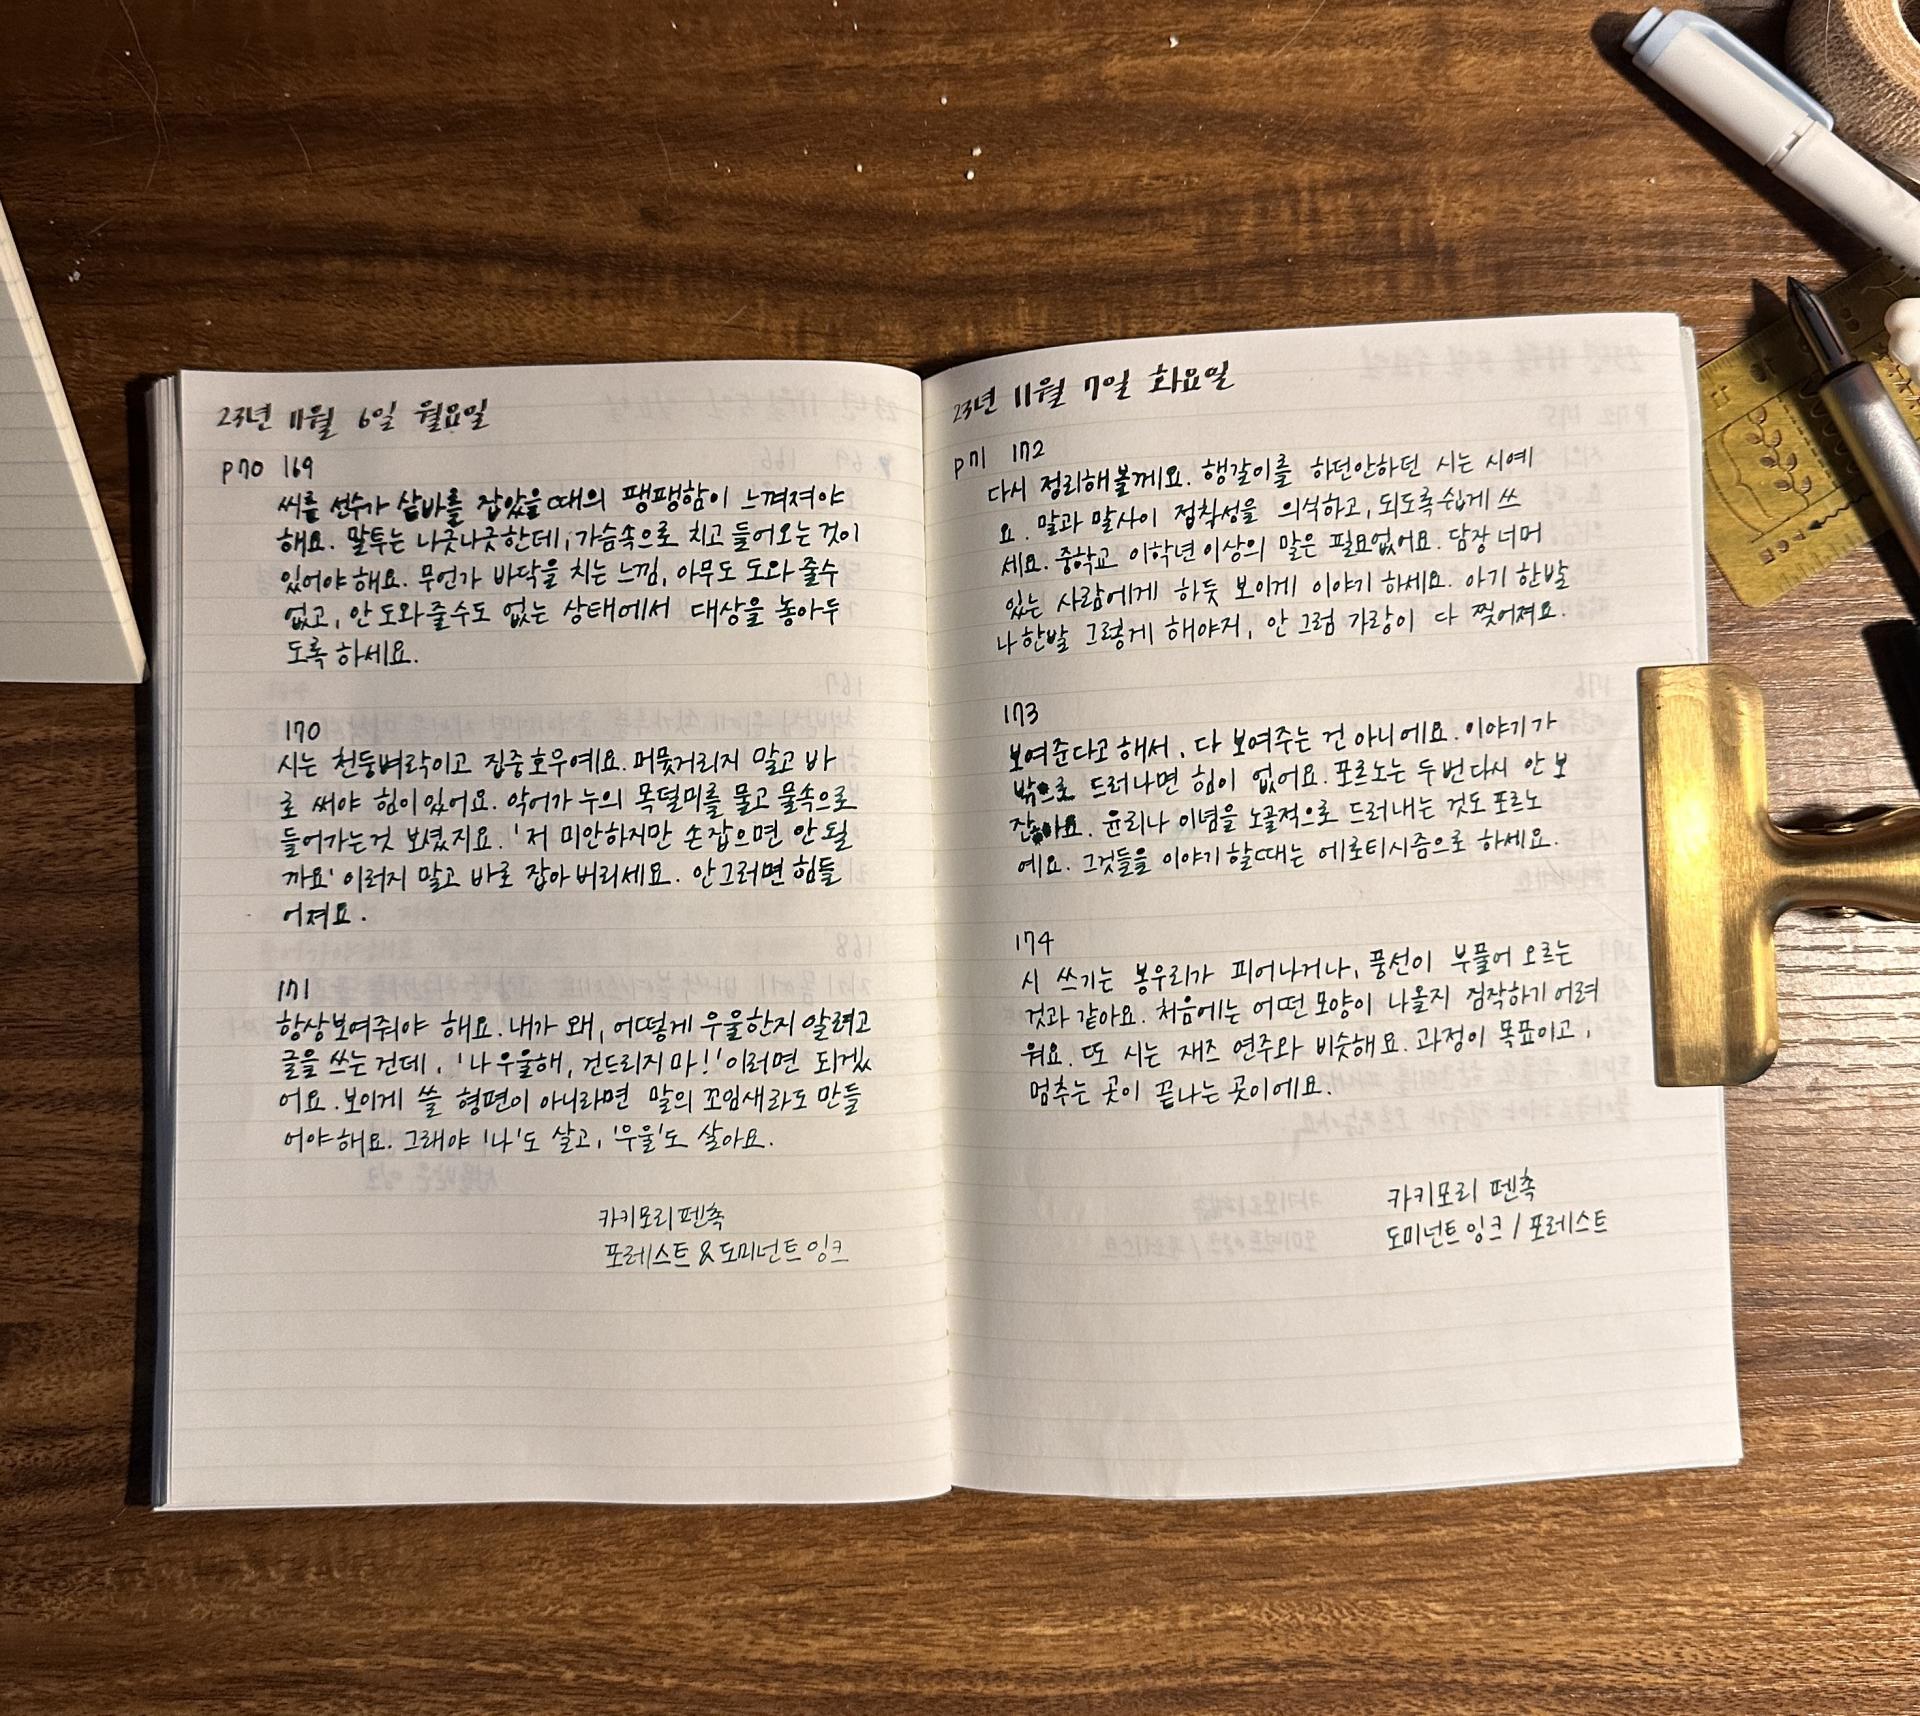 23년 11월 6일 월요일
p70 169
씨름 선수가 샅바를 잡았을때의 팽팽함이 느껴져야
해요. 말투는 나긋나긋한데, 가슴속으로 치고 들어오는 것이
있어야 해요. 무언가 바닥을 치는 느낌, 아무도 도와줄수
없고, 안 도와줄수도 없는 상태에서 대상을 놓아두
도록 하세요.
170
시는 천둥벼락이고 집중호우예요. 머뭇거리지 말고 바
로 써야 힘이있어요. 악어가 누의 목덜미를 물고 물속으로
들어가는것 보셨지요. '저 미안하지만 손잡으면 안될
까요' 이러지 말고 바로 잡아 버리세요. 안그러면 힘들
어져요.
171
항상보여줘야 해요. 내가 왜, 어떻게 우울한지 알려고
글을 쓰는 건데, '나 우울해, 건드리지 마!' 이러면 되겠
어요. 보이게 쓸 형편이 아니라면 말의 꼬임새라도 만들
어야해요. 그래야 '나'도 살고, '우울'도 살아요.
카키모리 펜촉
포레스트 & 도미넌트 잉크
23년 11월 7일 화요일
p71 172
다시 정리해볼께요. 행갈이를 하던안하던 시는 시예
요. 말과 말사이 접착성을 의식하고, 되도록쉽게 쓰
세요. 중학교 이학년 이상의 말은 필요없어요. 담장 너머
있는 사람에게 하듯 보이게 이야기 하세요. 아기 한발
나 한발 그렇게 해야지, 안 그럼 가랑이 다 찢어져요.
173
보여준다고 해서, 다 보여주는 건 아니에요. 이야기가
밖으로 드러나면 힘이 없어요. 포르노는 두번다시 안 보
잖아요. 윤리나 이념을 노골적으로 드러내는 것도 포르노
예요. 그것들을 이야기 할때는 에로티시즘으로 하세요.
174
시 쓰기는 봉우리가 피어나거나, 풍선이 부풀어 오르는
것과 같아요. 처음에는 어떤 모양이 나올지 짐작하기 어려
워요. 또 시는 재즈 연주와 비슷해요. 과정이 목표이고,
멈추는 곳이 끝나는 곳이에요.
카키모리 펜촉
도미넌트 잉크 / 포레스트